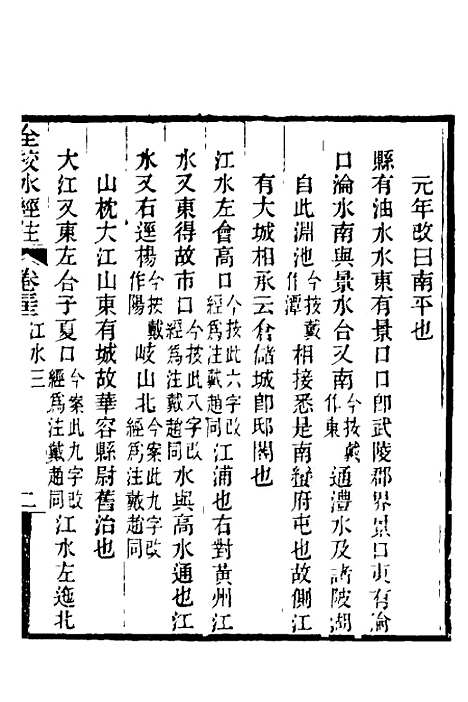 元年改曰南平也
縣有油水水東有景口口卽武陵郡界景口東有淪
口淪水南與景水合又南今按戴作東通澧水及諸陂湖
自此淵池今按戴作潭相接悉是南蠻府屯也故側江
有大城相承云倉儲城卽邸閣也
江水左會高口今按此六字改經爲注戴趙同江浦也右對黃州江
水又東得故市口今按此八字改經爲注戴趙同水與高水通也江
水又右逕楊今按戴作陽岐山北今案此九字改經爲注戴趙同
山枕大江山東有城故華容縣尉舊治也
大江又東左合子夏口今案此九字改經爲注戴趙同江水左迤北
全校水經注 卷三十五 江水三 二